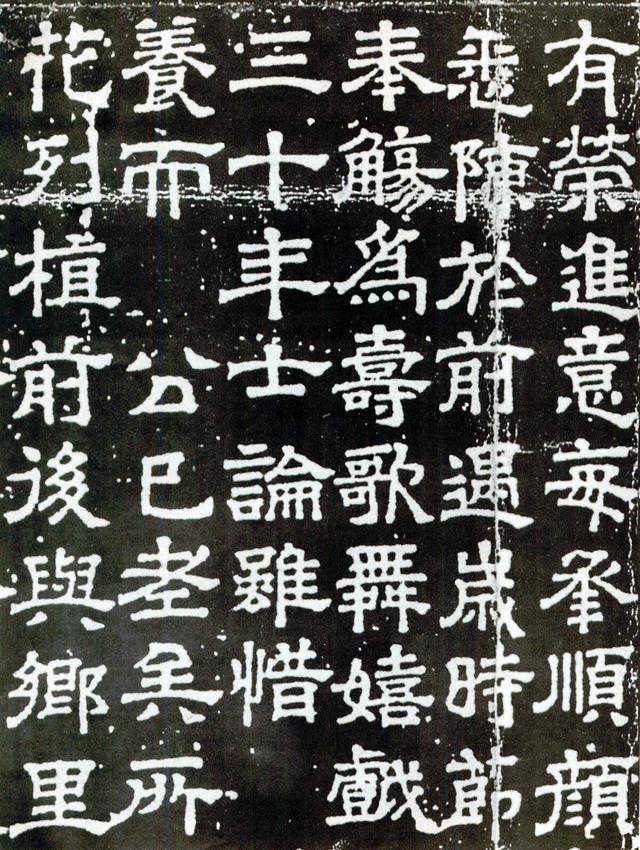 有榮進意每承順顔
悉陳於前遇歲時節
奉觴爲壽歌舞嬉戲
三十年士論雖惜
養而 公已老矣所
花列植前後與鄉里